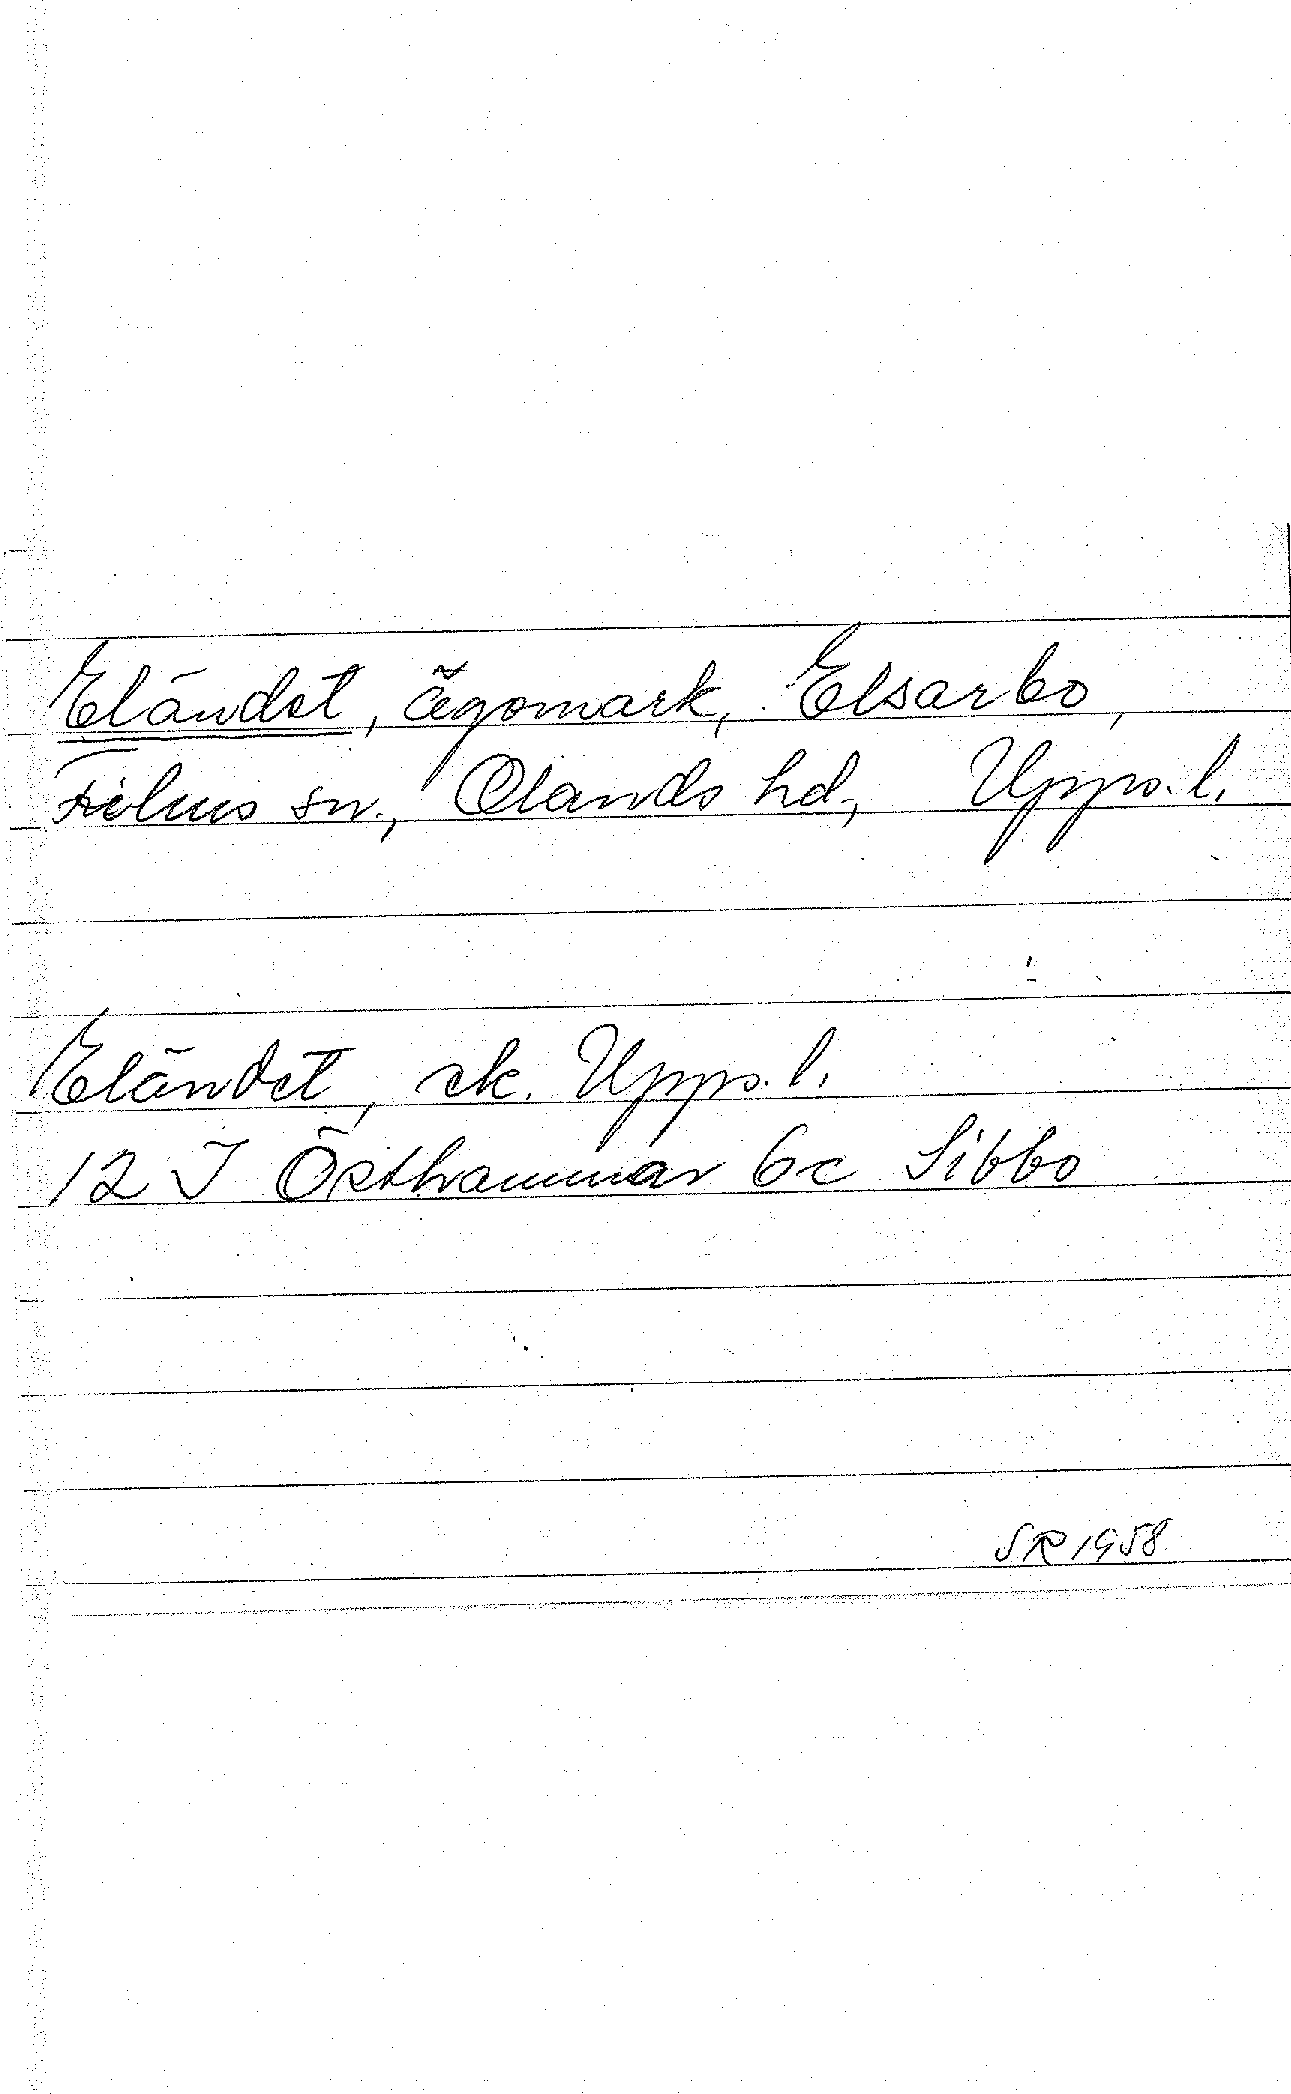 Eländet, ägomark, Elsarbo,
Films sn., Olands hd, Upps. l.
Eländet, ek. Upps. l.
12 I Östhammar 6c Sibbo
SR 1958